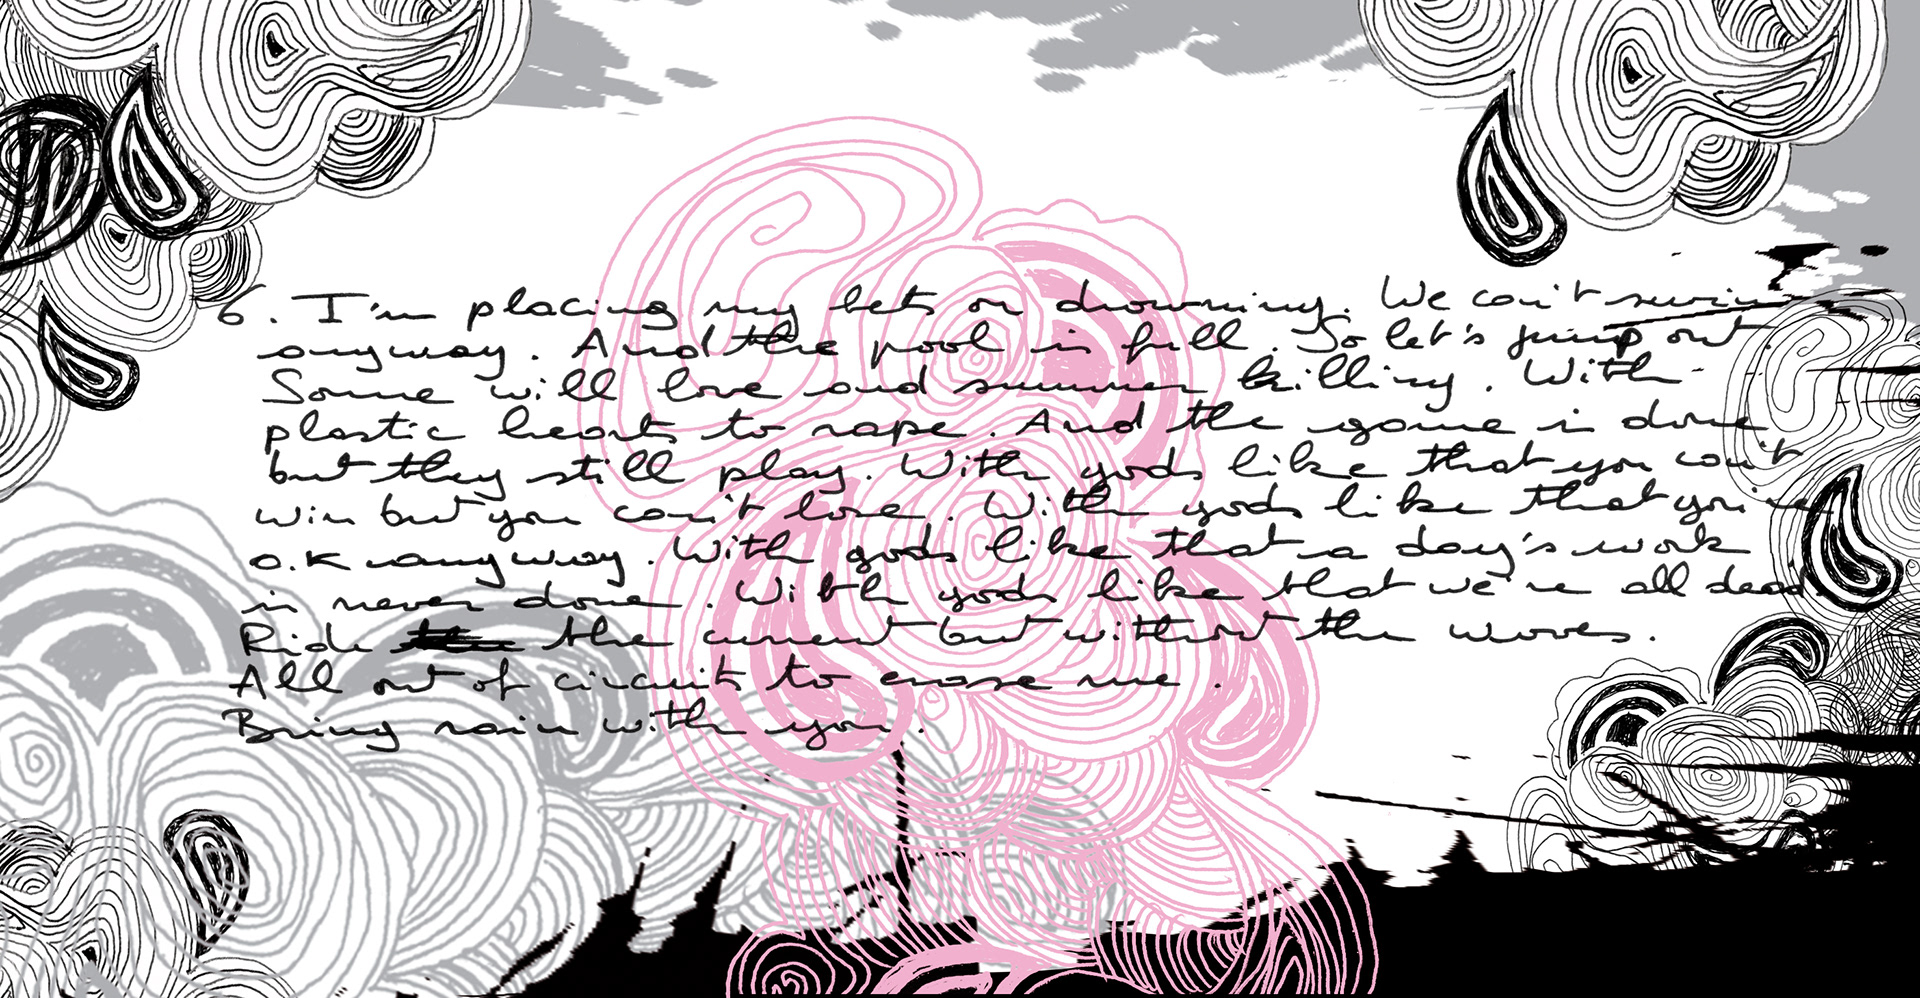 6. I'm placing my bets on drowning. We can't swim
anyway. And the pool is full. So let's jump out.
Some will love and summer killing. With
plastic hearts to rape. And the game is done
but they still play. With gods like that you can't
win but you can't lose. With gods like that you're
o.K anyway. With gods like that a day's work
is never done. With gods like that we're all dead.
Ride the current but without the waves.
All out of circuits to erase me.
Bring rain with you.